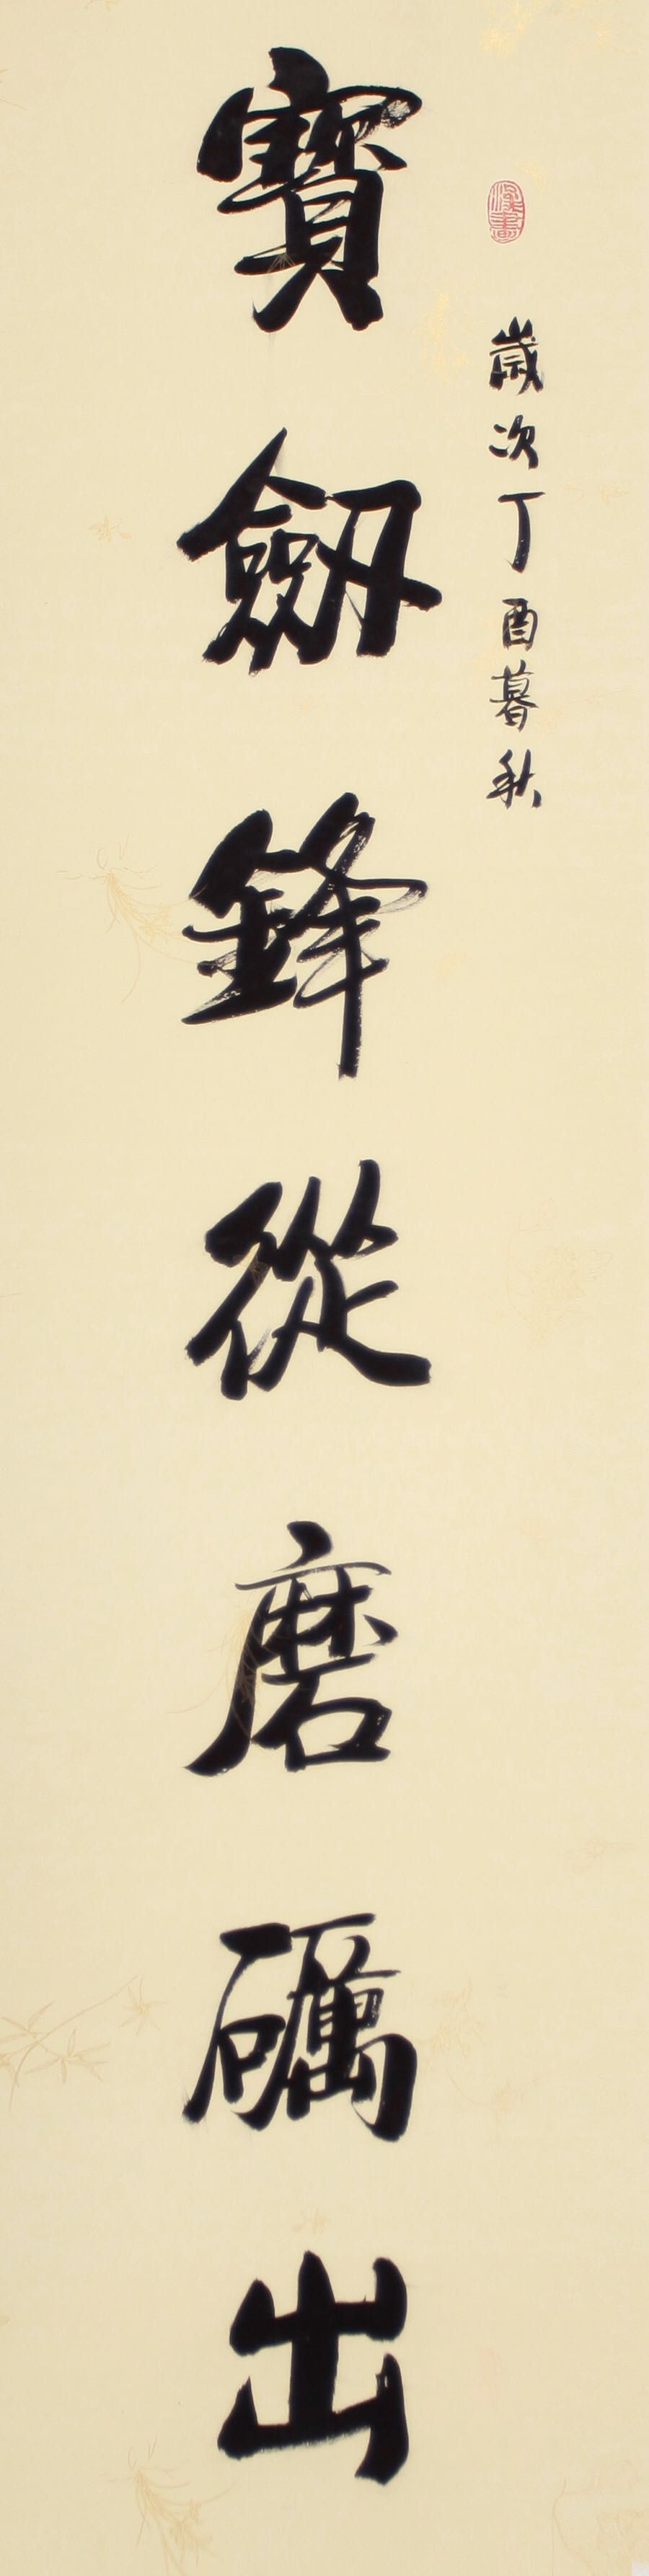 歲次丁酉暮秋
寶劔鋒從磨礪出